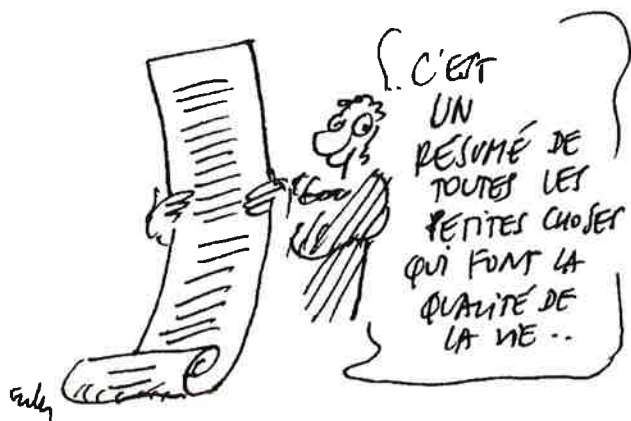 .. C'EST
UN
RÉSUMÉ DE
TOUTES LES
PETITES CHOSES
QUI FONT LA
QUALITÉ DE
LA VIE ..